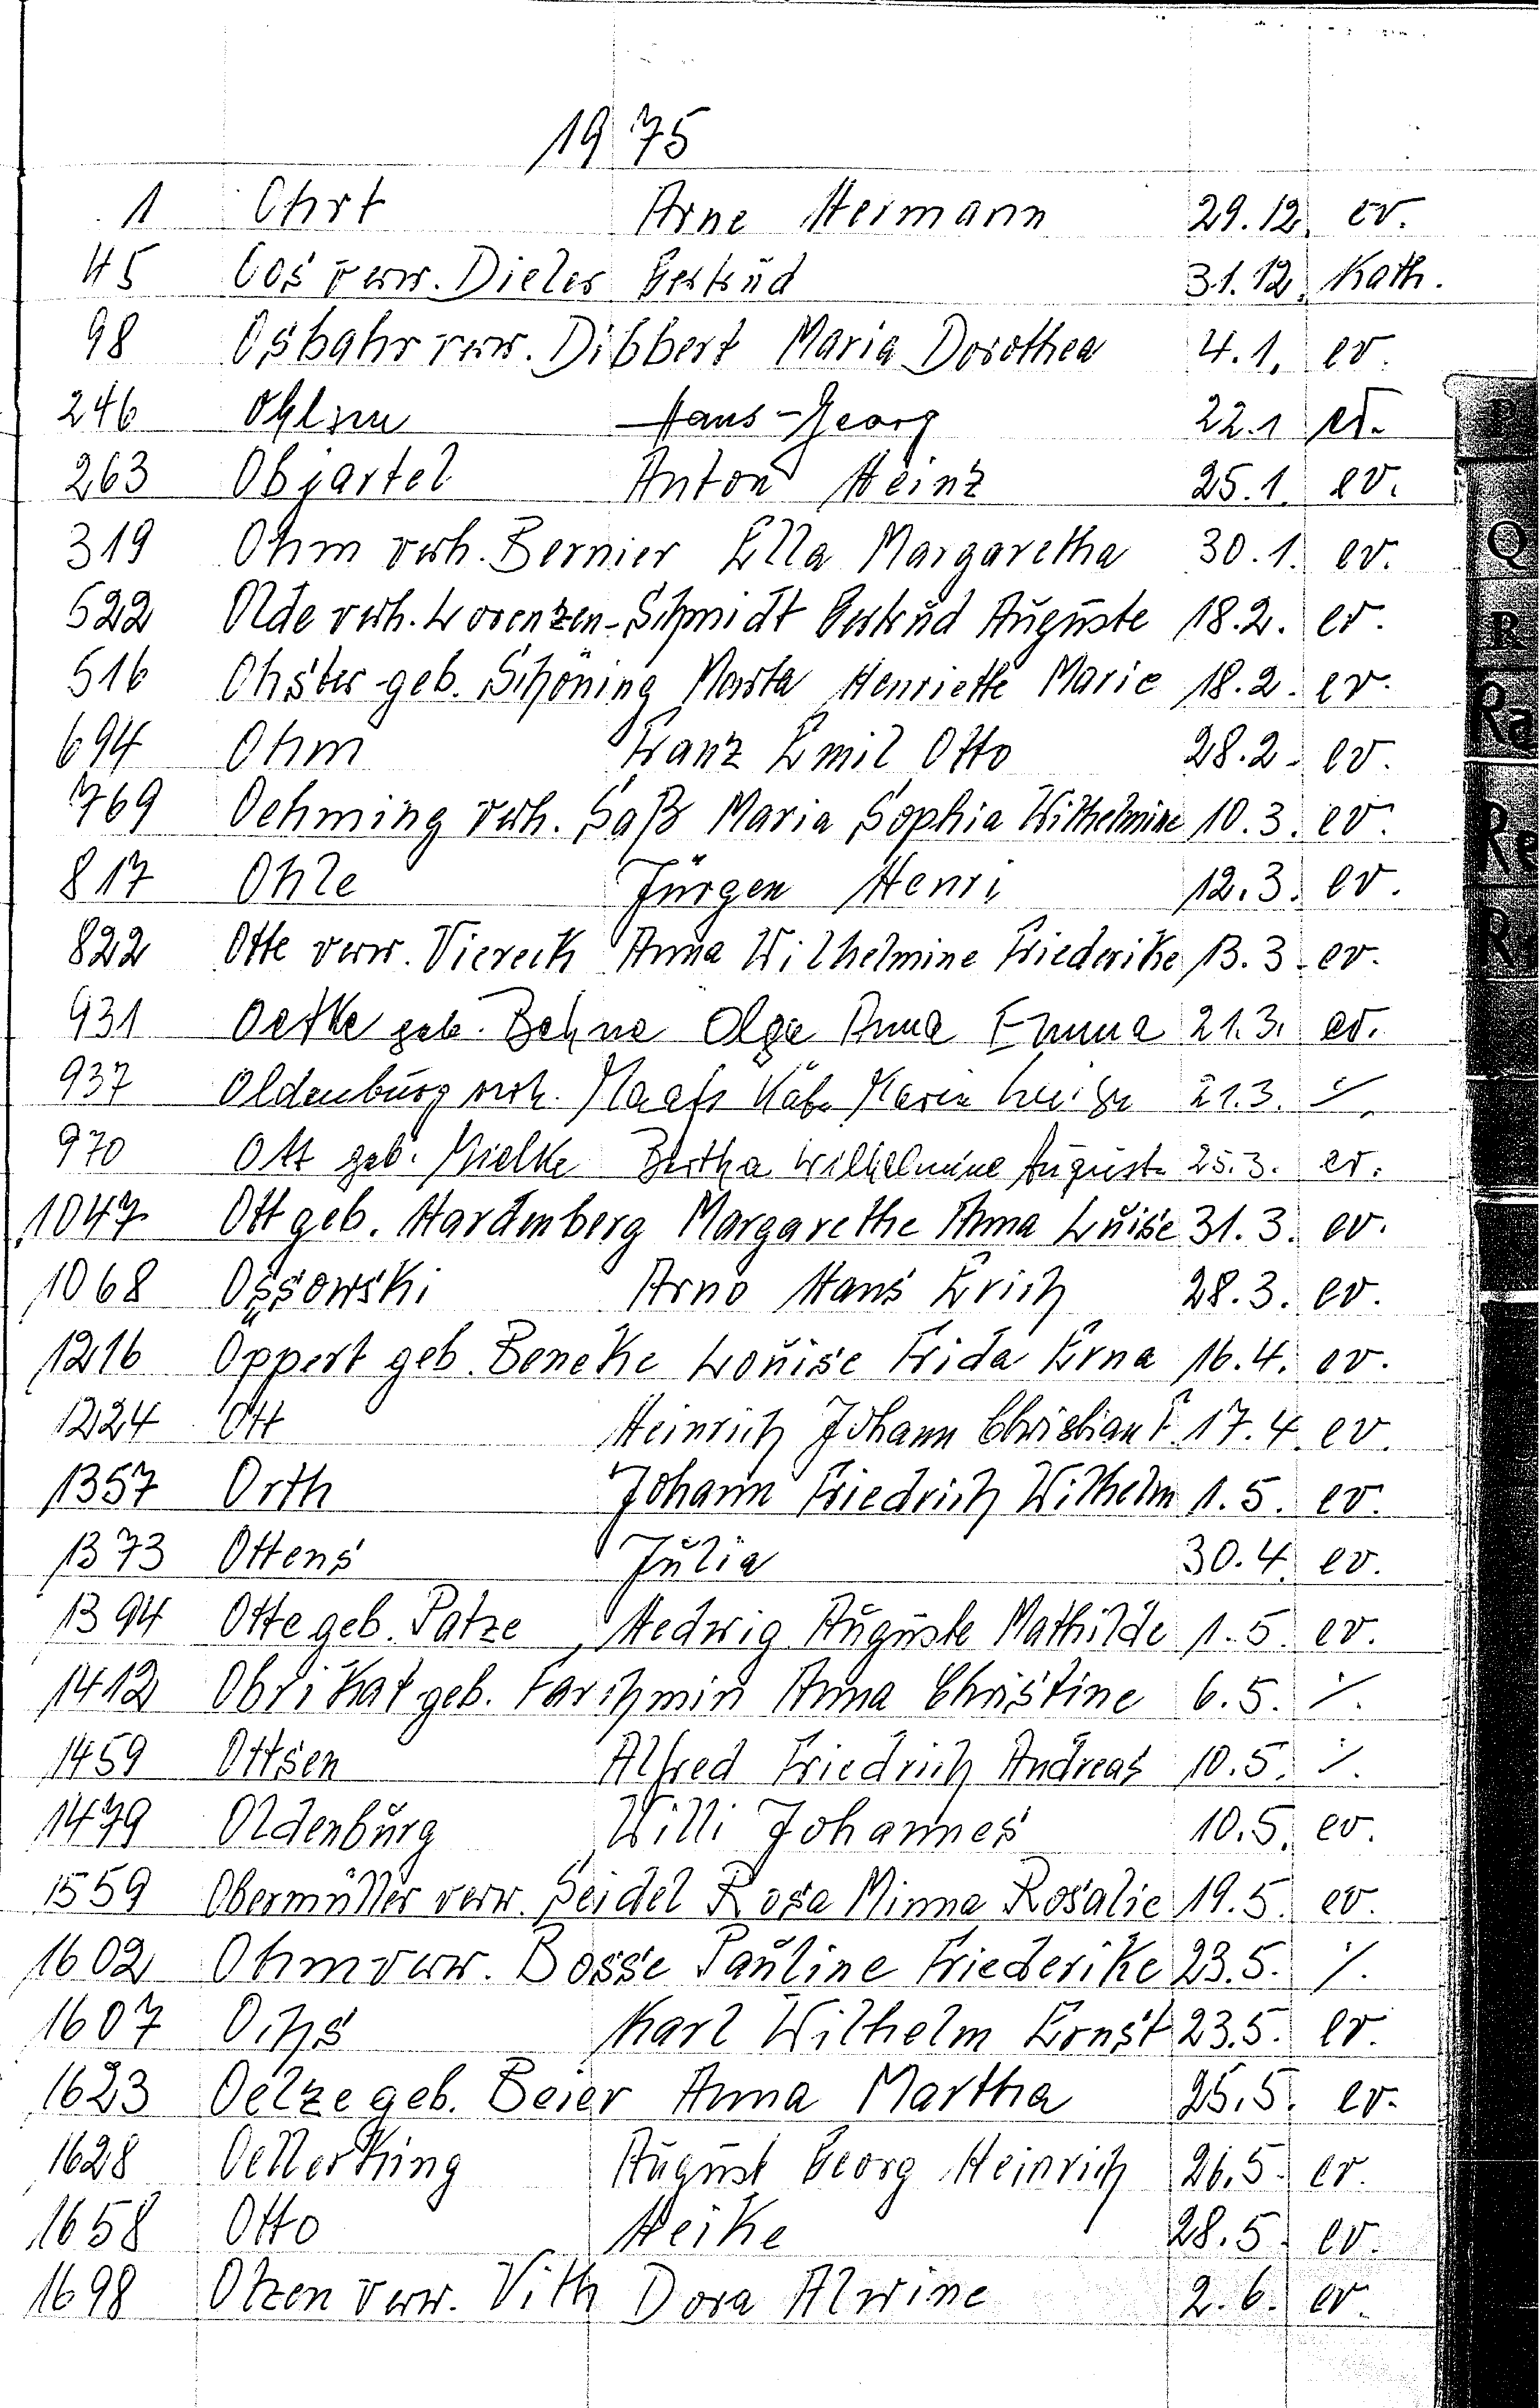 1975
1 Ohrt Arne Hermann 29.12. ev.
45 Oos verw. Dieler Gertrud 31.12. Kath.
98 Osbahr verw. Dibbert Maria Dorothea 4.1. ev.
246 Ohlsen Hans-Georg 22.1 ev.
263 Objartel Anton Heinz 25.1. ev.
319 Ohm verh. Bernier Ella Margaretha 30.1. ev.
522 Olde verh. Lorenzen-Schmidt Gertrud Auguste 18.2. ev.
516 Ohster geb. Schöning Marta Henriette Marie 18.2. ev.
694 Ohm Franz Emil Otto 28.2. ev.
769 Oehming verh. Saß Maria Sophia Wilhelmine 10.3. ev.
817 Ohle Jürgen Henri 12.3. ev.
822 Otte verw. Viereck Anna Wilhelmine Friederike 13.3. ev.
931 Oetke geb. Behne Olga Anna Emma 21.3. ev.
937 Oldenburg verh. Maaß Käte Maria Luise 21.3. ./.
970 Ott geb. Mielke Bertha Wilhelmine Auguste 25.3. ev.
1047 Ott geb. Hardenberg Margarethe Anna Luise 31.3. ev.
1068 Ossowski Arno Hans Erich 28.3. ev.
1216 Oppert geb. Beneke Louise Frida Erna 16.4. ev.
1224 Ott Heinrich Johann Christian F. 17.4. ev.
1357 Orth Johann Friedrich Wilhelm 1.5. ev.
1373 Ottens Julia 30.4. ev.
1394 Otte geb. Patze Hedwig Auguste Mathilde 1.5. ev.
1412 Obrikat geb. Farchmin Anna Christine 6.5. ./.
1459 Ottsen Alfred Friedrich Andreas 10.5. ./.
1479 Oldenburg Willi Johannes 10.5. ev.
1559 Obermüller verw. Seidel Rosa Minna Rosalie 19.5. ev.
1602 Ohm verw. Bosse Pauline Friederike 23.5. ./.
1607 Ochs Karl Wilhelm Ernst 23.5. ev.
1623 Oelze geb. Beier Anna Martha 25.5. ev.
1628 Oellerking August Georg Heinrich 26.5. ev.
1658 Otto Heike 28.5. ev.
1698 Otzen verw. Vith Dora Alwine 2.6. ev.
P
Q
R
Ra
Re
R